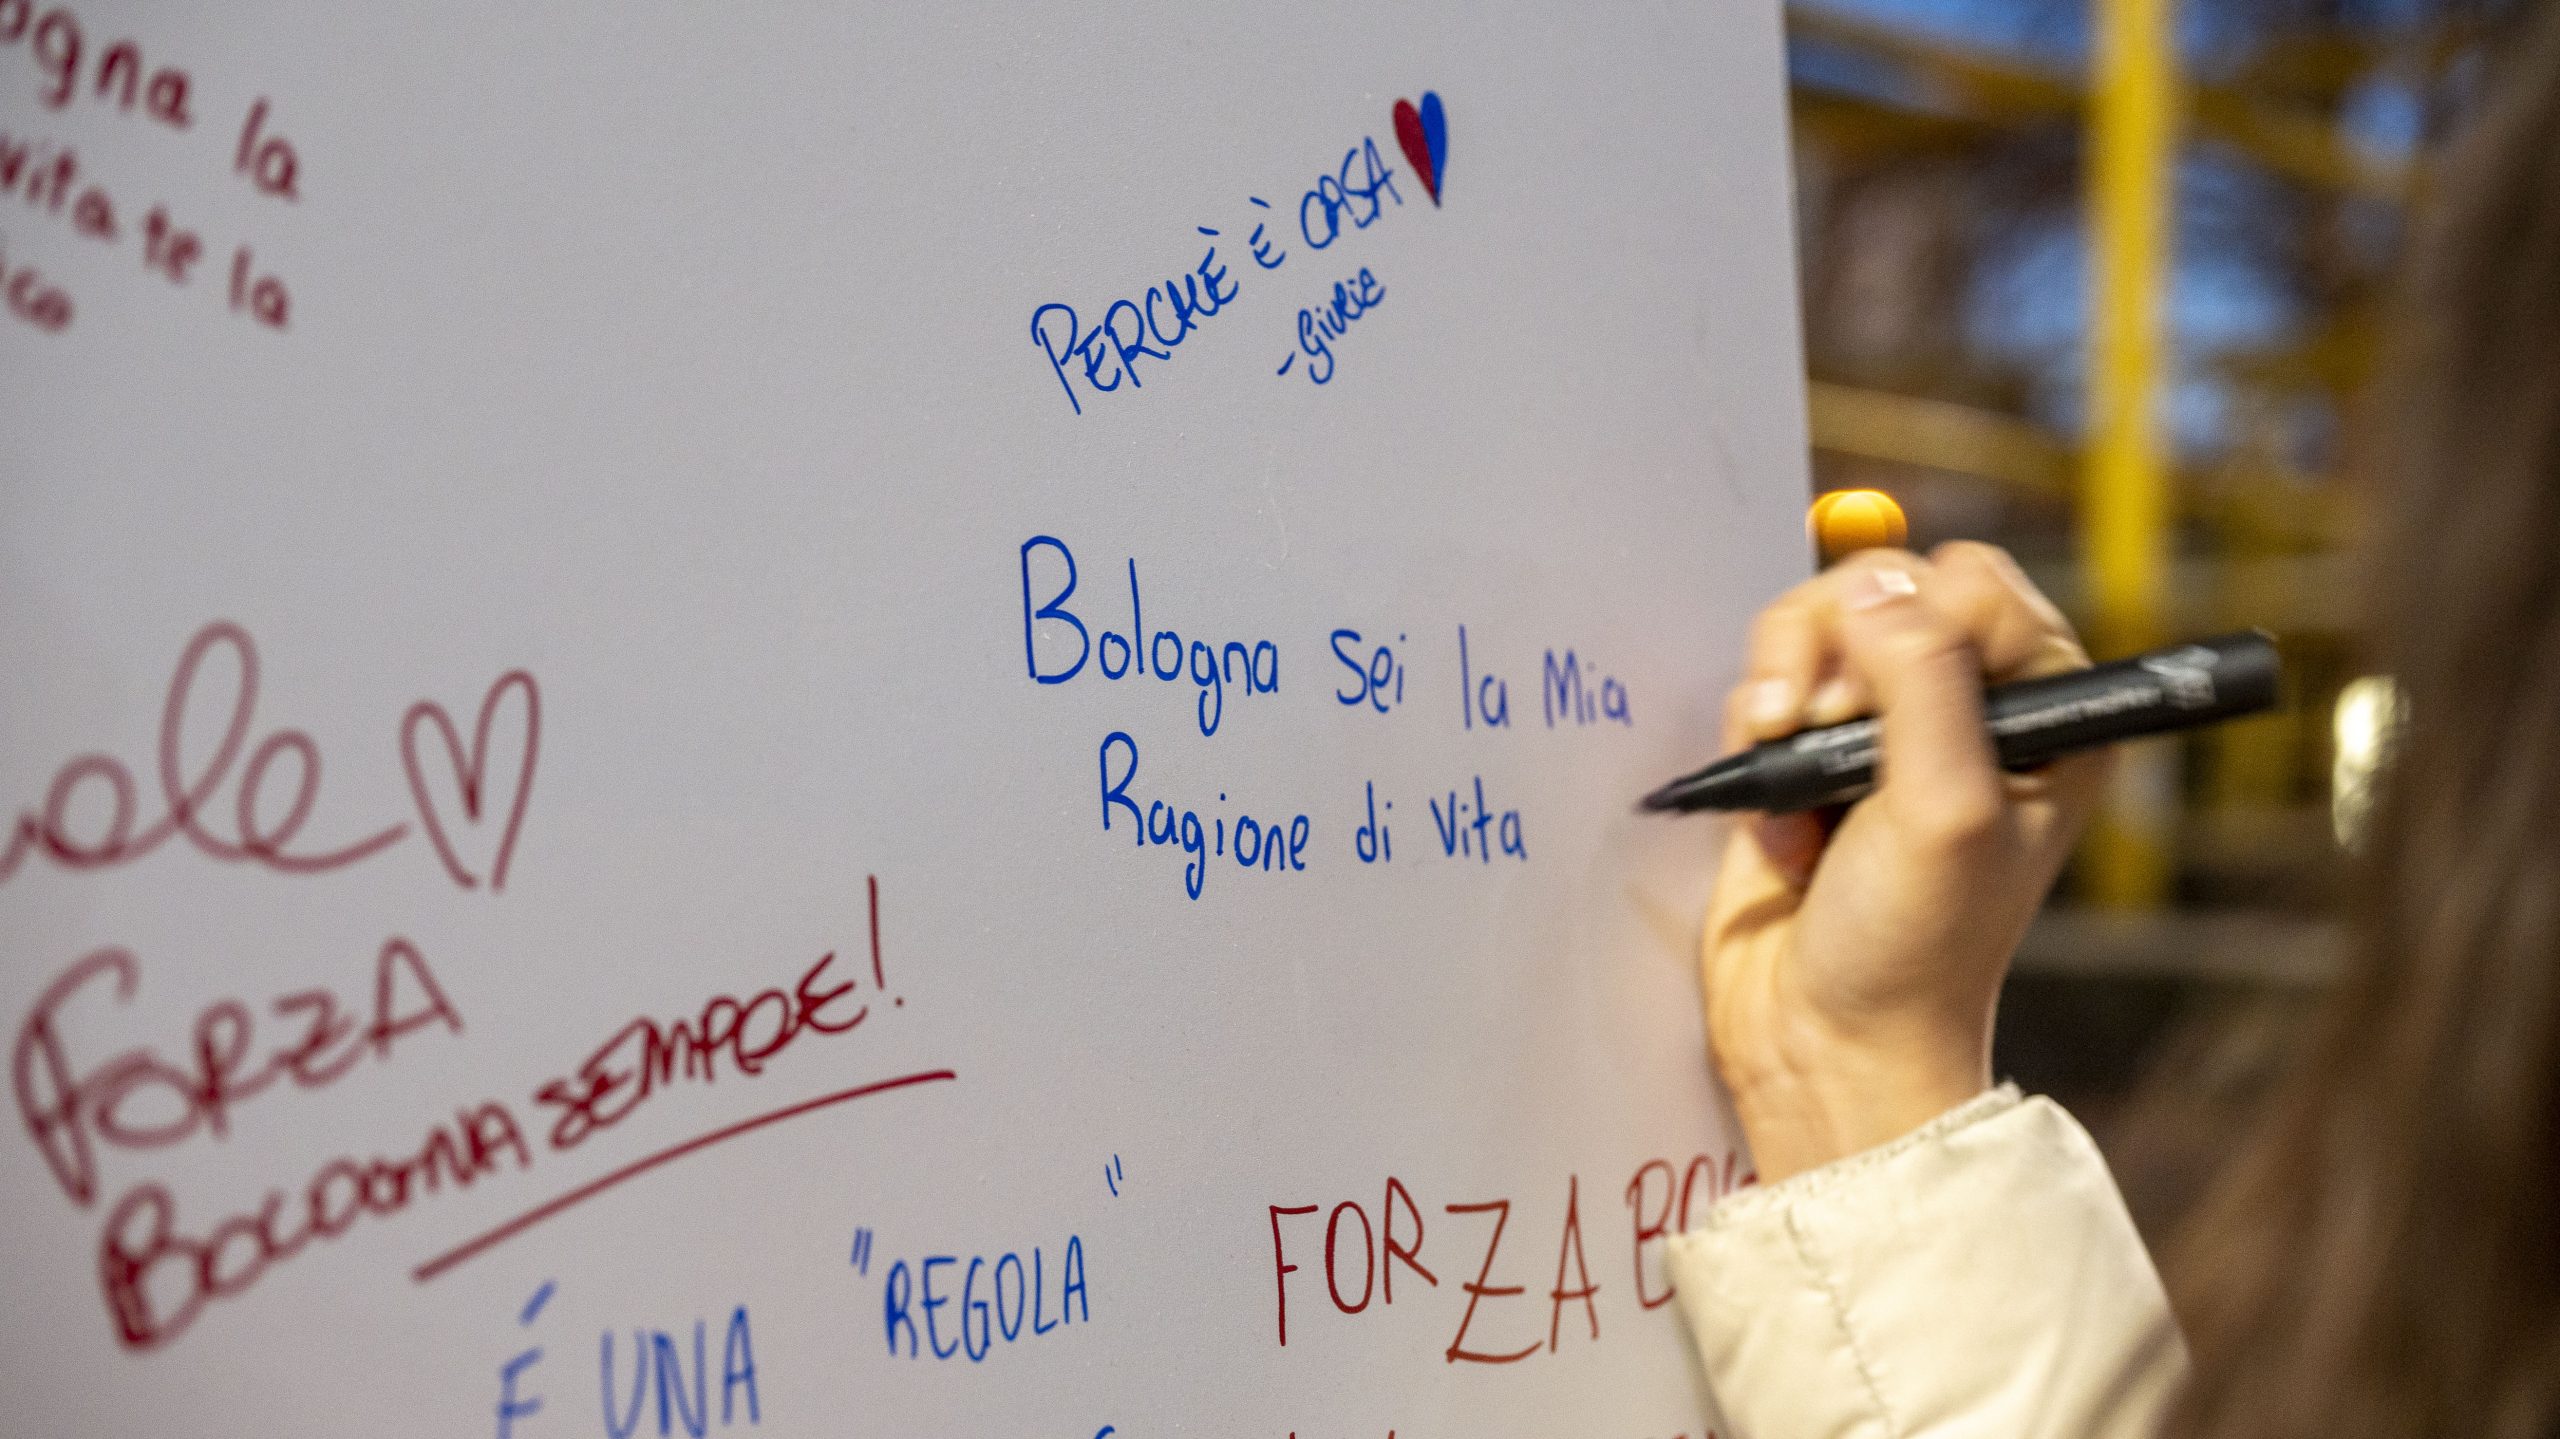 ogna la
vita te la
PERCHÈ È CASA
Bologna sei la Mia
Ragione di vita
FORZA
BOLOGNA SEMPRE!
É UNA "REGOLA"
FORZA